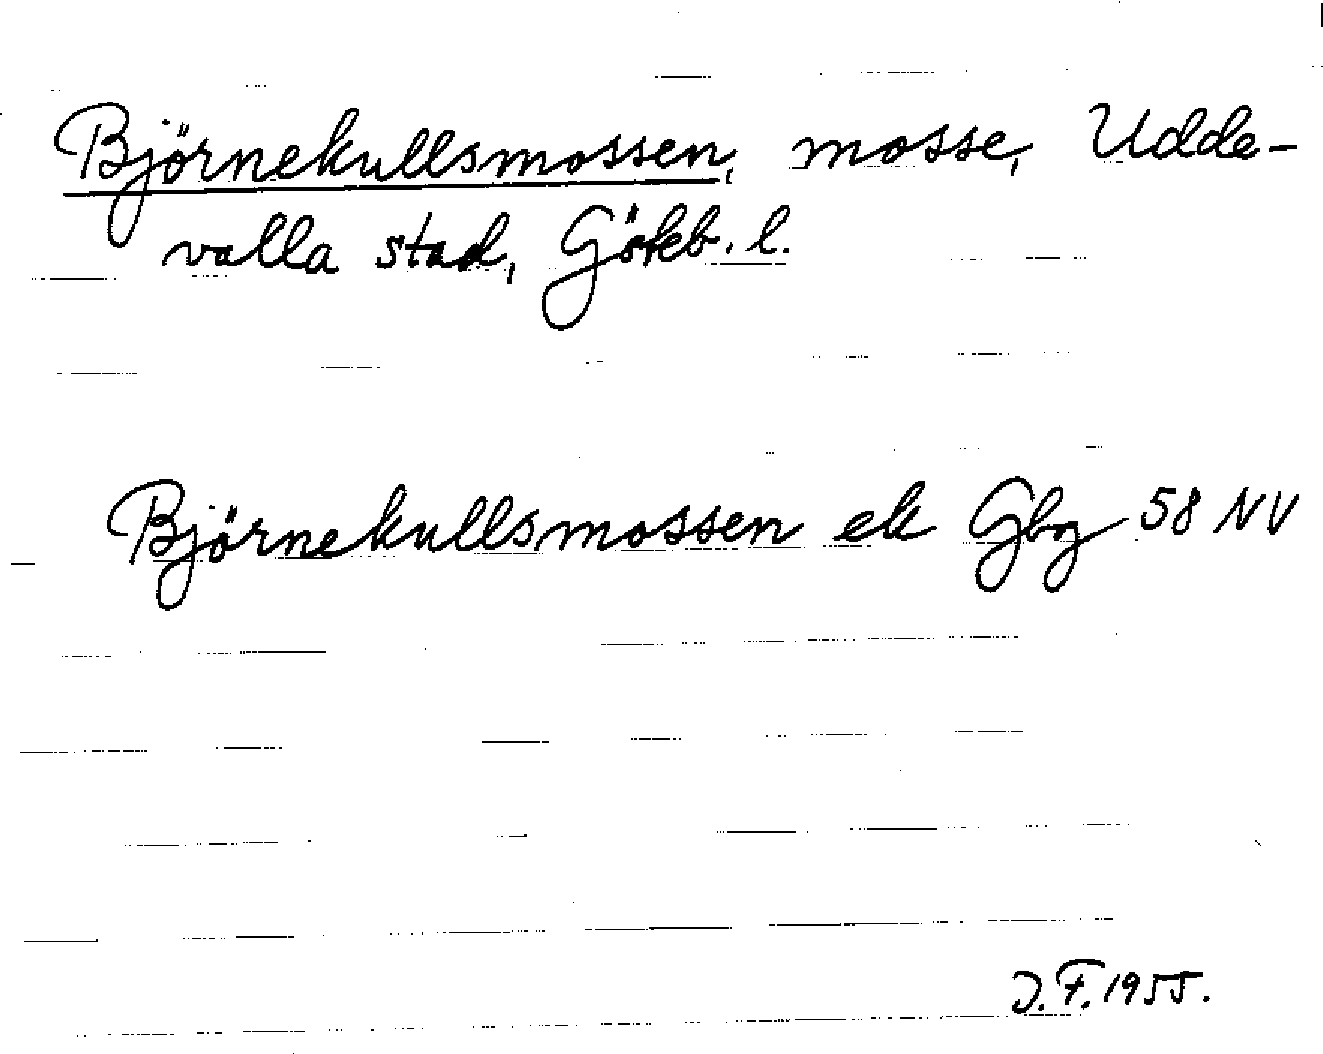 Björnekullsmossen, mosse, Udde-
valla stad, Göteb. l.
Björnekullsmossen ek Gbg 58 NV
J.F. 1955.